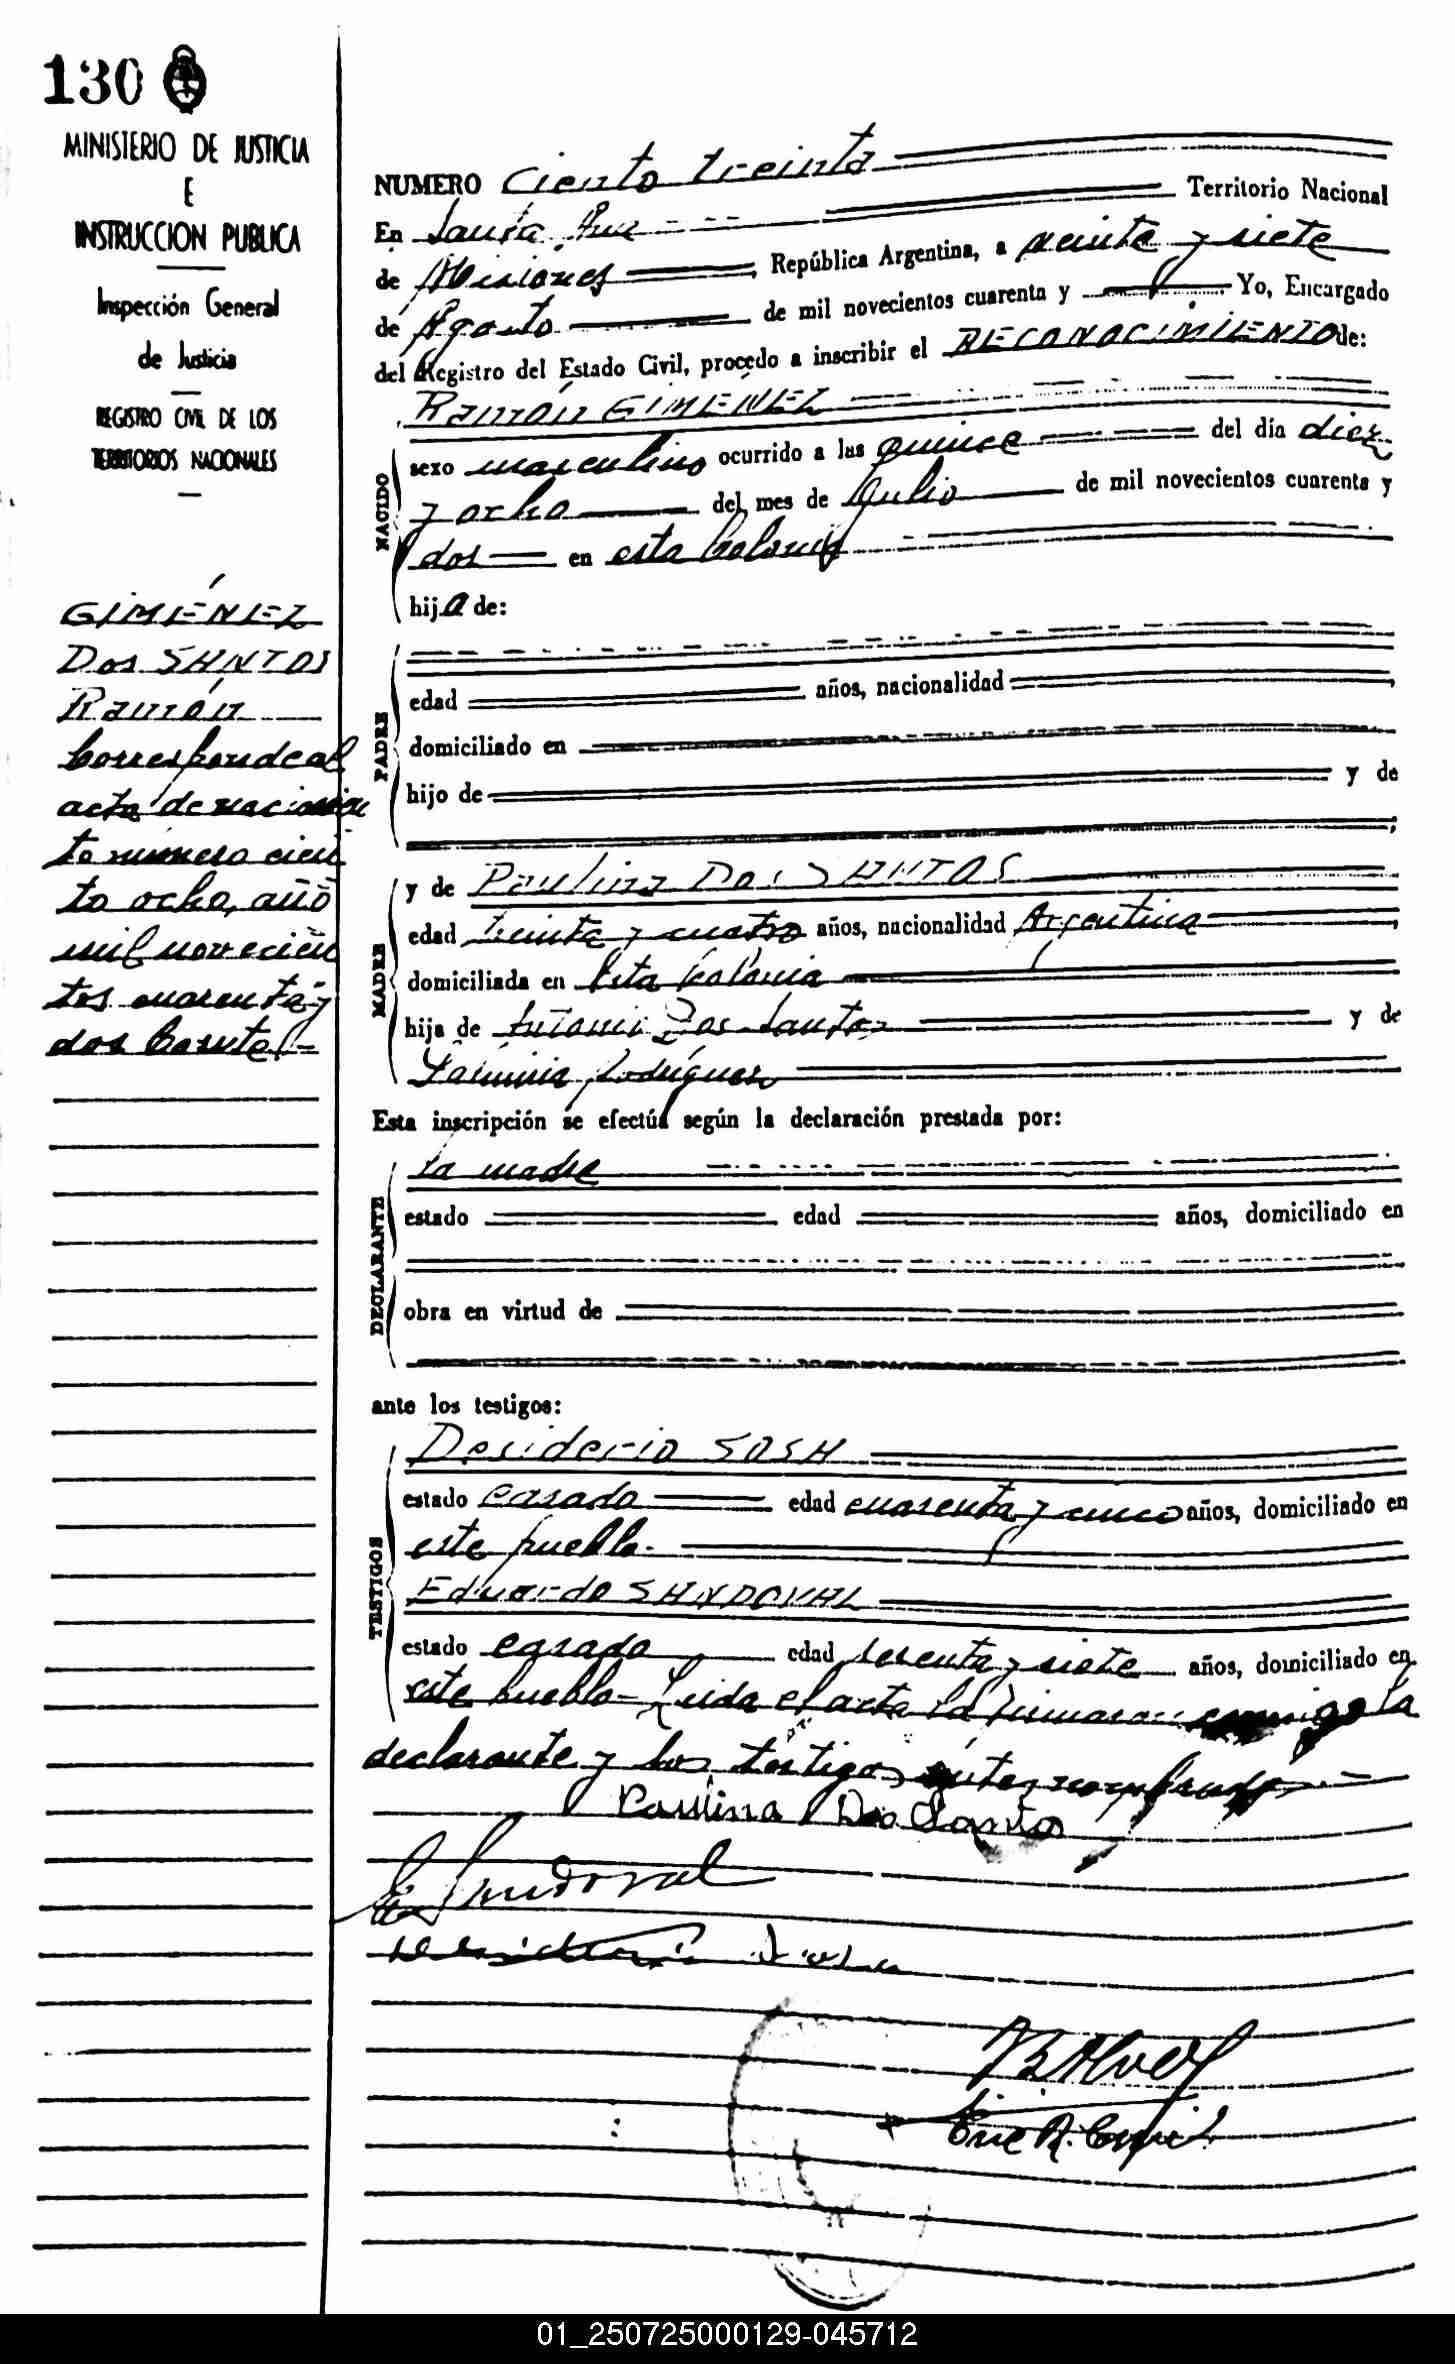 130
MINISTERIO DE JUSTICIA
E
INSTRUCCION PUBLICA
Inspección General
de Justicia
REGISTRO CIVIL DE LOS
TERRITORIOS NACIONALES
GIMÉNEZ
Dos SANTOS
Ramón
Corresponde al
acta de nacimien
to número cien
to ocho, año
mil novecien
tos cuarenta y
dos
NUMERO Ciento treinta
En Santa Ana Territorio Nacional
de Misiones, República Argentina, a veinte y siete
de Agosto de mil novecientos cuarenta y Yo, Encargado
del Registro del Estado Civil, procedo a inscribir el RECONOCIMIENTO de:
Ramón GIMÉNEZ
NACIDO
sexo masculino ocurrido a las quince del día diez
y ocho del mes de Julio de mil novecientos cuarenta y
dos en esta Colonia
hijo de:
PADRE
edad años, nacionalidad
domiciliado en
hijo de y de
MADRE
y de Paulina Dos SANTOS
edad treinta y cuatro años, nacionalidad Argentina
domiciliada en Esta Colonia
hija de Antonio Dos Santos y de
Rodríguez
Esta inscripción se efectúa según la declaración prestada por:
DECLARANTE
la madre
estado edad años, domiciliado en
obra en virtud de
ante los testigos:
TESTIGOS
Desiderio SOSA
estado casado edad cuarenta y cinco años, domiciliado en
este pueblo.
Eduardo SANDOVAL
estado casado edad sesenta y siete años, domiciliado en
este pueblo - Leida el acta la firmaron conmigo la
declarante y los testigos antes nombrados.-
Paulina Dos Santos
E Sandoval
Desiderio Sosa
Enc R. Civil
01_250725000129-045712